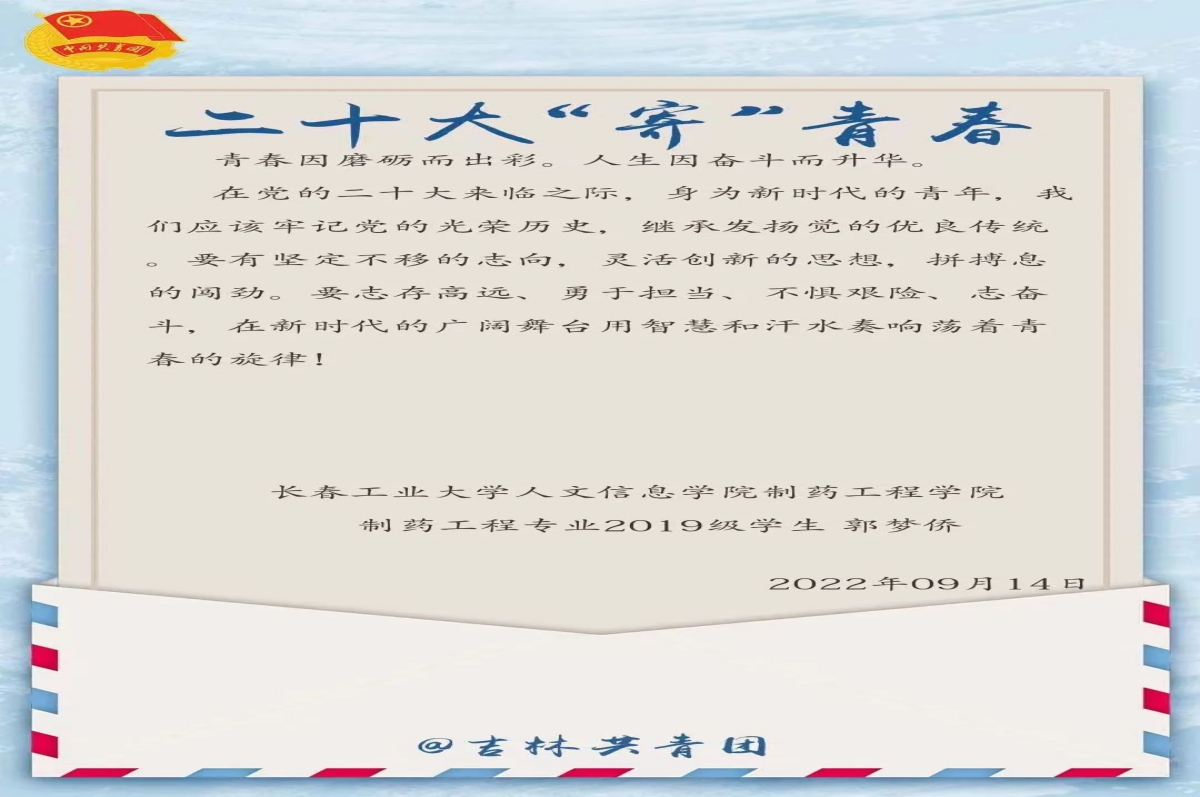 中国共青团
二十大“寄”青春
青春因磨砺而出彩。人生因奋斗而升华。
在党的二十大来临之际，身为新时代的青年，我
们应该牢记党的光荣历史，继承发扬觉的优良传统
。要有坚定不移的志向，灵活创新的思想，拼搏息
的闯劲。要志存高远、勇于担当、不惧艰险、志奋
斗，在新时代的广阔舞台用智慧和汗水奏响荡着青
春的旋律！
长春工业大学人文信息学院制药工程学院
制药工程专业2019级学生 郭梦侨
2022年09月14日
@吉林共青团